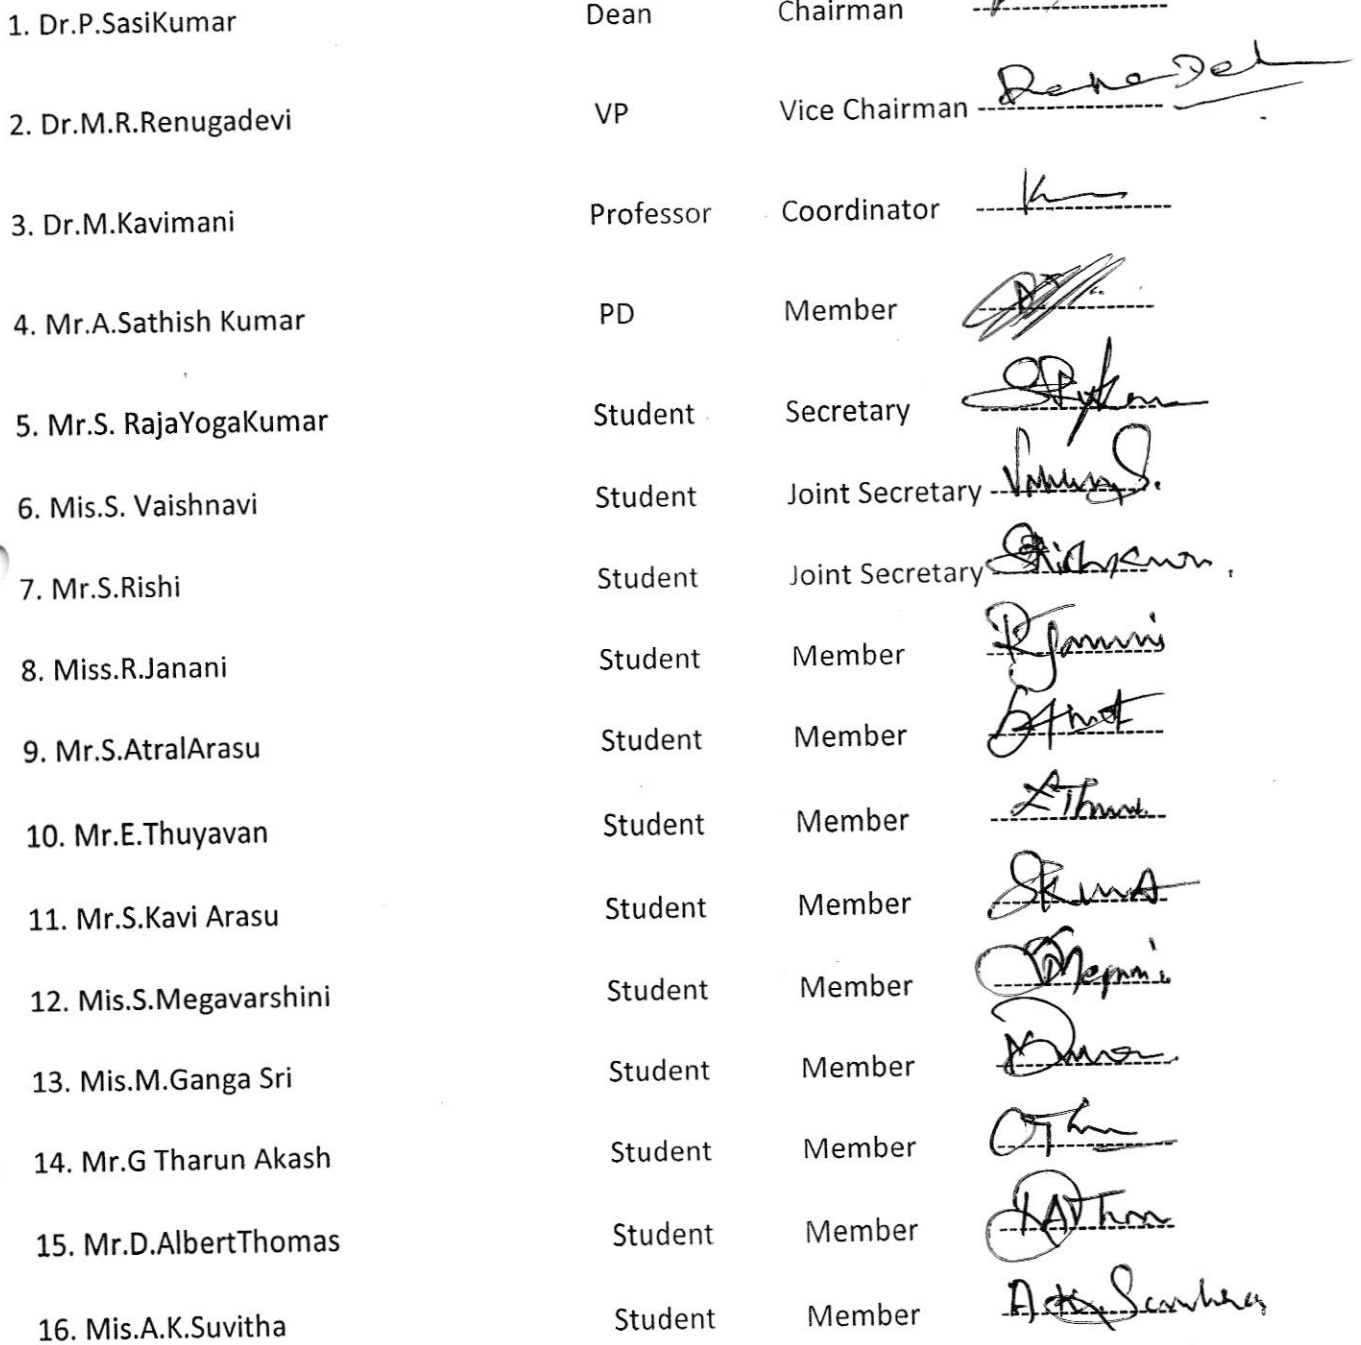 1. Dr.P.SasiKumar Dean Chairman
2. Dr.M.R.Renugadevi VP Vice Chairman
3. Dr.M.Kavimani Professor Coordinator
4. Mr.A.Sathish Kumar PD Member
5. Mr.S. RajaYogaKumar Student Secretary
6. Mis.S. Vaishnavi Student Joint Secretary
7. Mr.S.Rishi Student Joint Secretary
8. Miss.R.Janani Student Member
9. Mr.S.AtralArasu Student Member
10. Mr.E.Thuyavan Student Member
11. Mr.S.Kavi Arasu Student Member
12. Mis.S.Megavarshini Student Member
13. Mis.M.Ganga Sri Student Member
14. Mr.G Tharun Akash Student Member
15. Mr.D.AlbertThomas Student Member
16. Mis.A.K.Suvitha Student Member